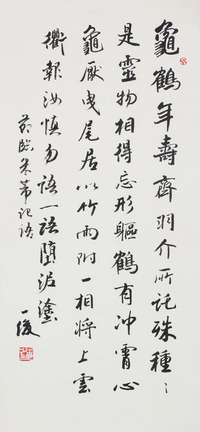 龜鶴年壽齊羽介所託殊種種
是靈物相得忘形軀鶴有沖霄心
龜厭曳尾居以竹兩附口相將上雲
衢報汝慎勿語一語墮泥塗
節臨米芾記語
一後